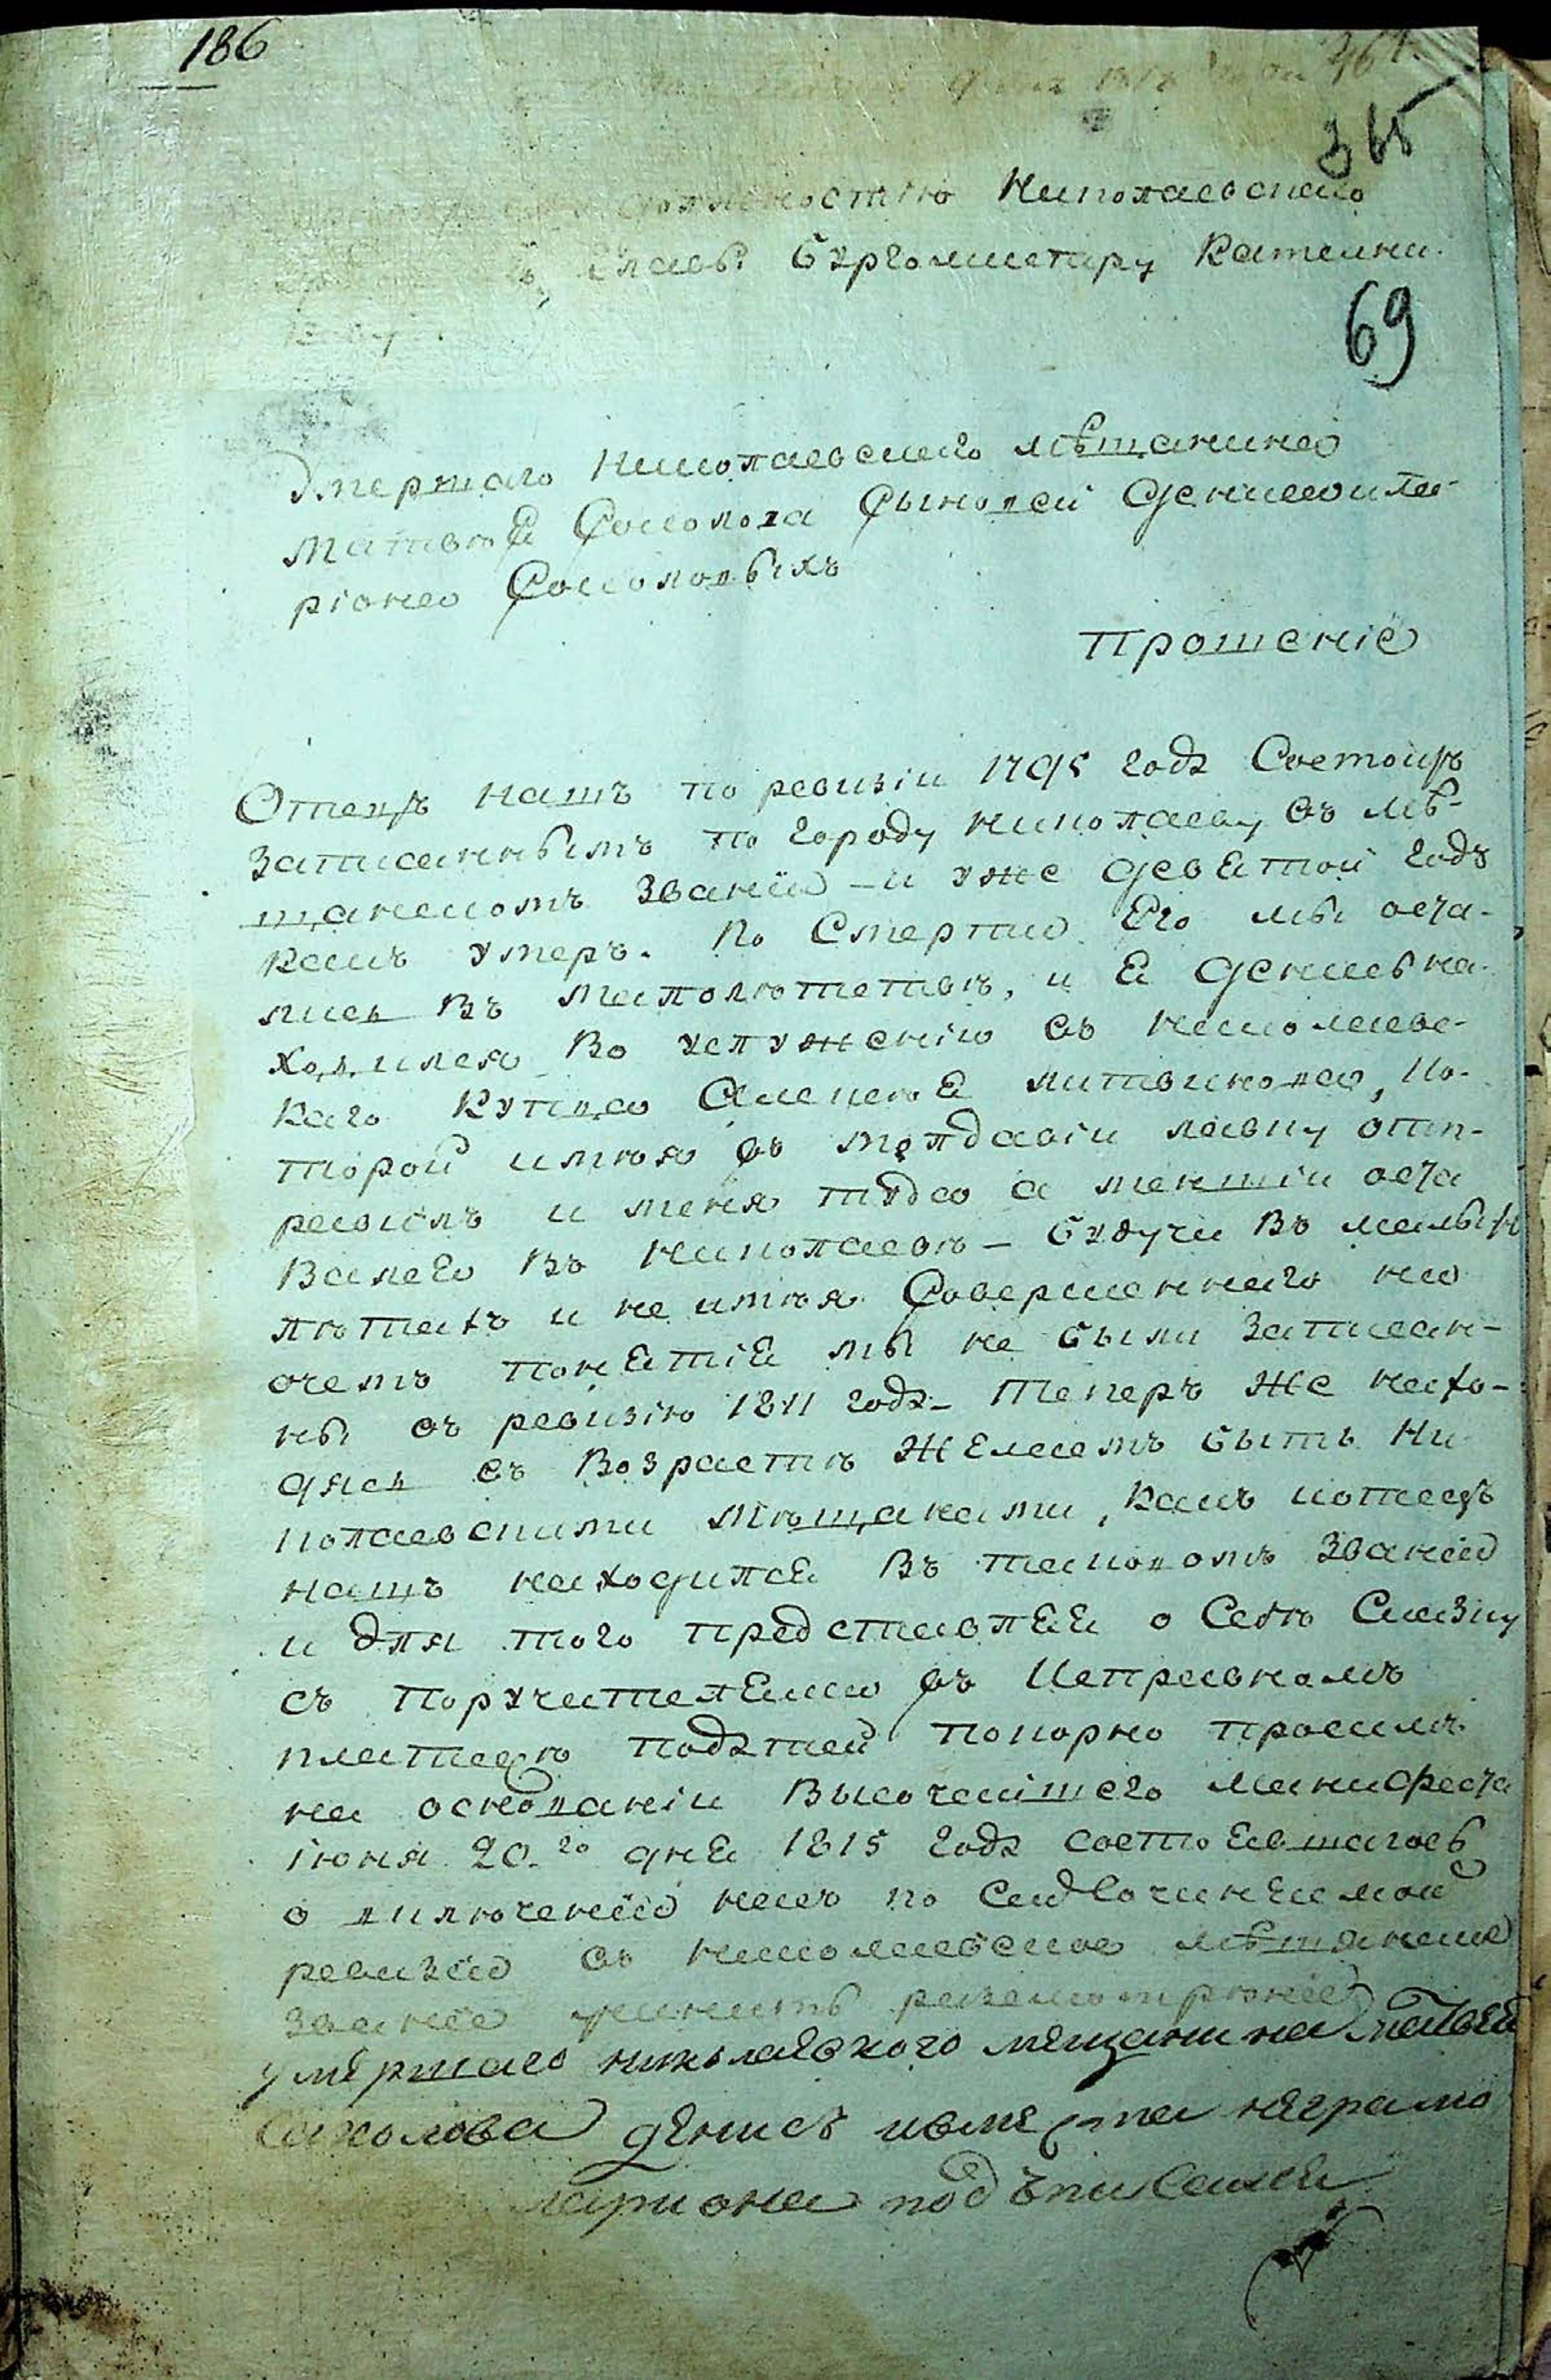 186
365
должностію Николаевскаго
Главы Бургомистру Кателни-
69
Умершаго Николаевскаго мѣщанина
Матвѣя Соколова Сыновей Дениса и Ла-
ріона Соколовыхъ
Прошеніе
Отецъ нашъ по ревизіи 1795 года Состоитъ
записаннымъ по городу николаеву въ мѣ-
щанскомъ званіи – и уже девятой годъ
какъ умеръ. По Смерти Его мы оста-
лись въ малолѣтствѣ, и я Денисъ на-
ходился во услуженіи въ николаевс-
каго купца Алексѣя литвинова, ко-
торой имѣя въ молдавіи лавку отп-
равилъ и меня туда а меншій оста
вался въ николаевѣ – будучи въ малых
лѣтахъ и не имѣя Совершеннаго ни
очемъ понятія мы не были записан-
ны въ ревизію 1811 года – Теперъ же нахо-
дясь въ возрастѣ желаемъ быть Ни-
колаевскими мѣщанами, какъ иотецъ
нашъ находился въ таковомъ званіи
и для того представляя о Себѣ Сказку
съ поручательми въ исправномъ
платежѣ податей покорно просимъ
на основаніи Высочайшего манифеста
іюня 20.го дня 1815 года состоявшагось
о включеніи насъ по Сидѣочиняемой
ревизіи въ николаевское мѣщанское
званіе учинить разсмотрѣніе
умершаго николаевского мещанина матвея
Сахолова денисъ
лариона подъписался